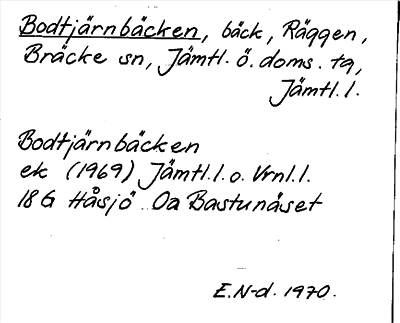 Bodtjärnbäcken, bäck, Räggen,
Bräcke sn, Jämtl. ö. doms. tg,
Jämtl. l.
Bodtjärnbäcken
ek (1969) Jämtl. l. o. Vrnl. l.
18G Håsjö 0a Bastunäset
E.N-d. 1970.